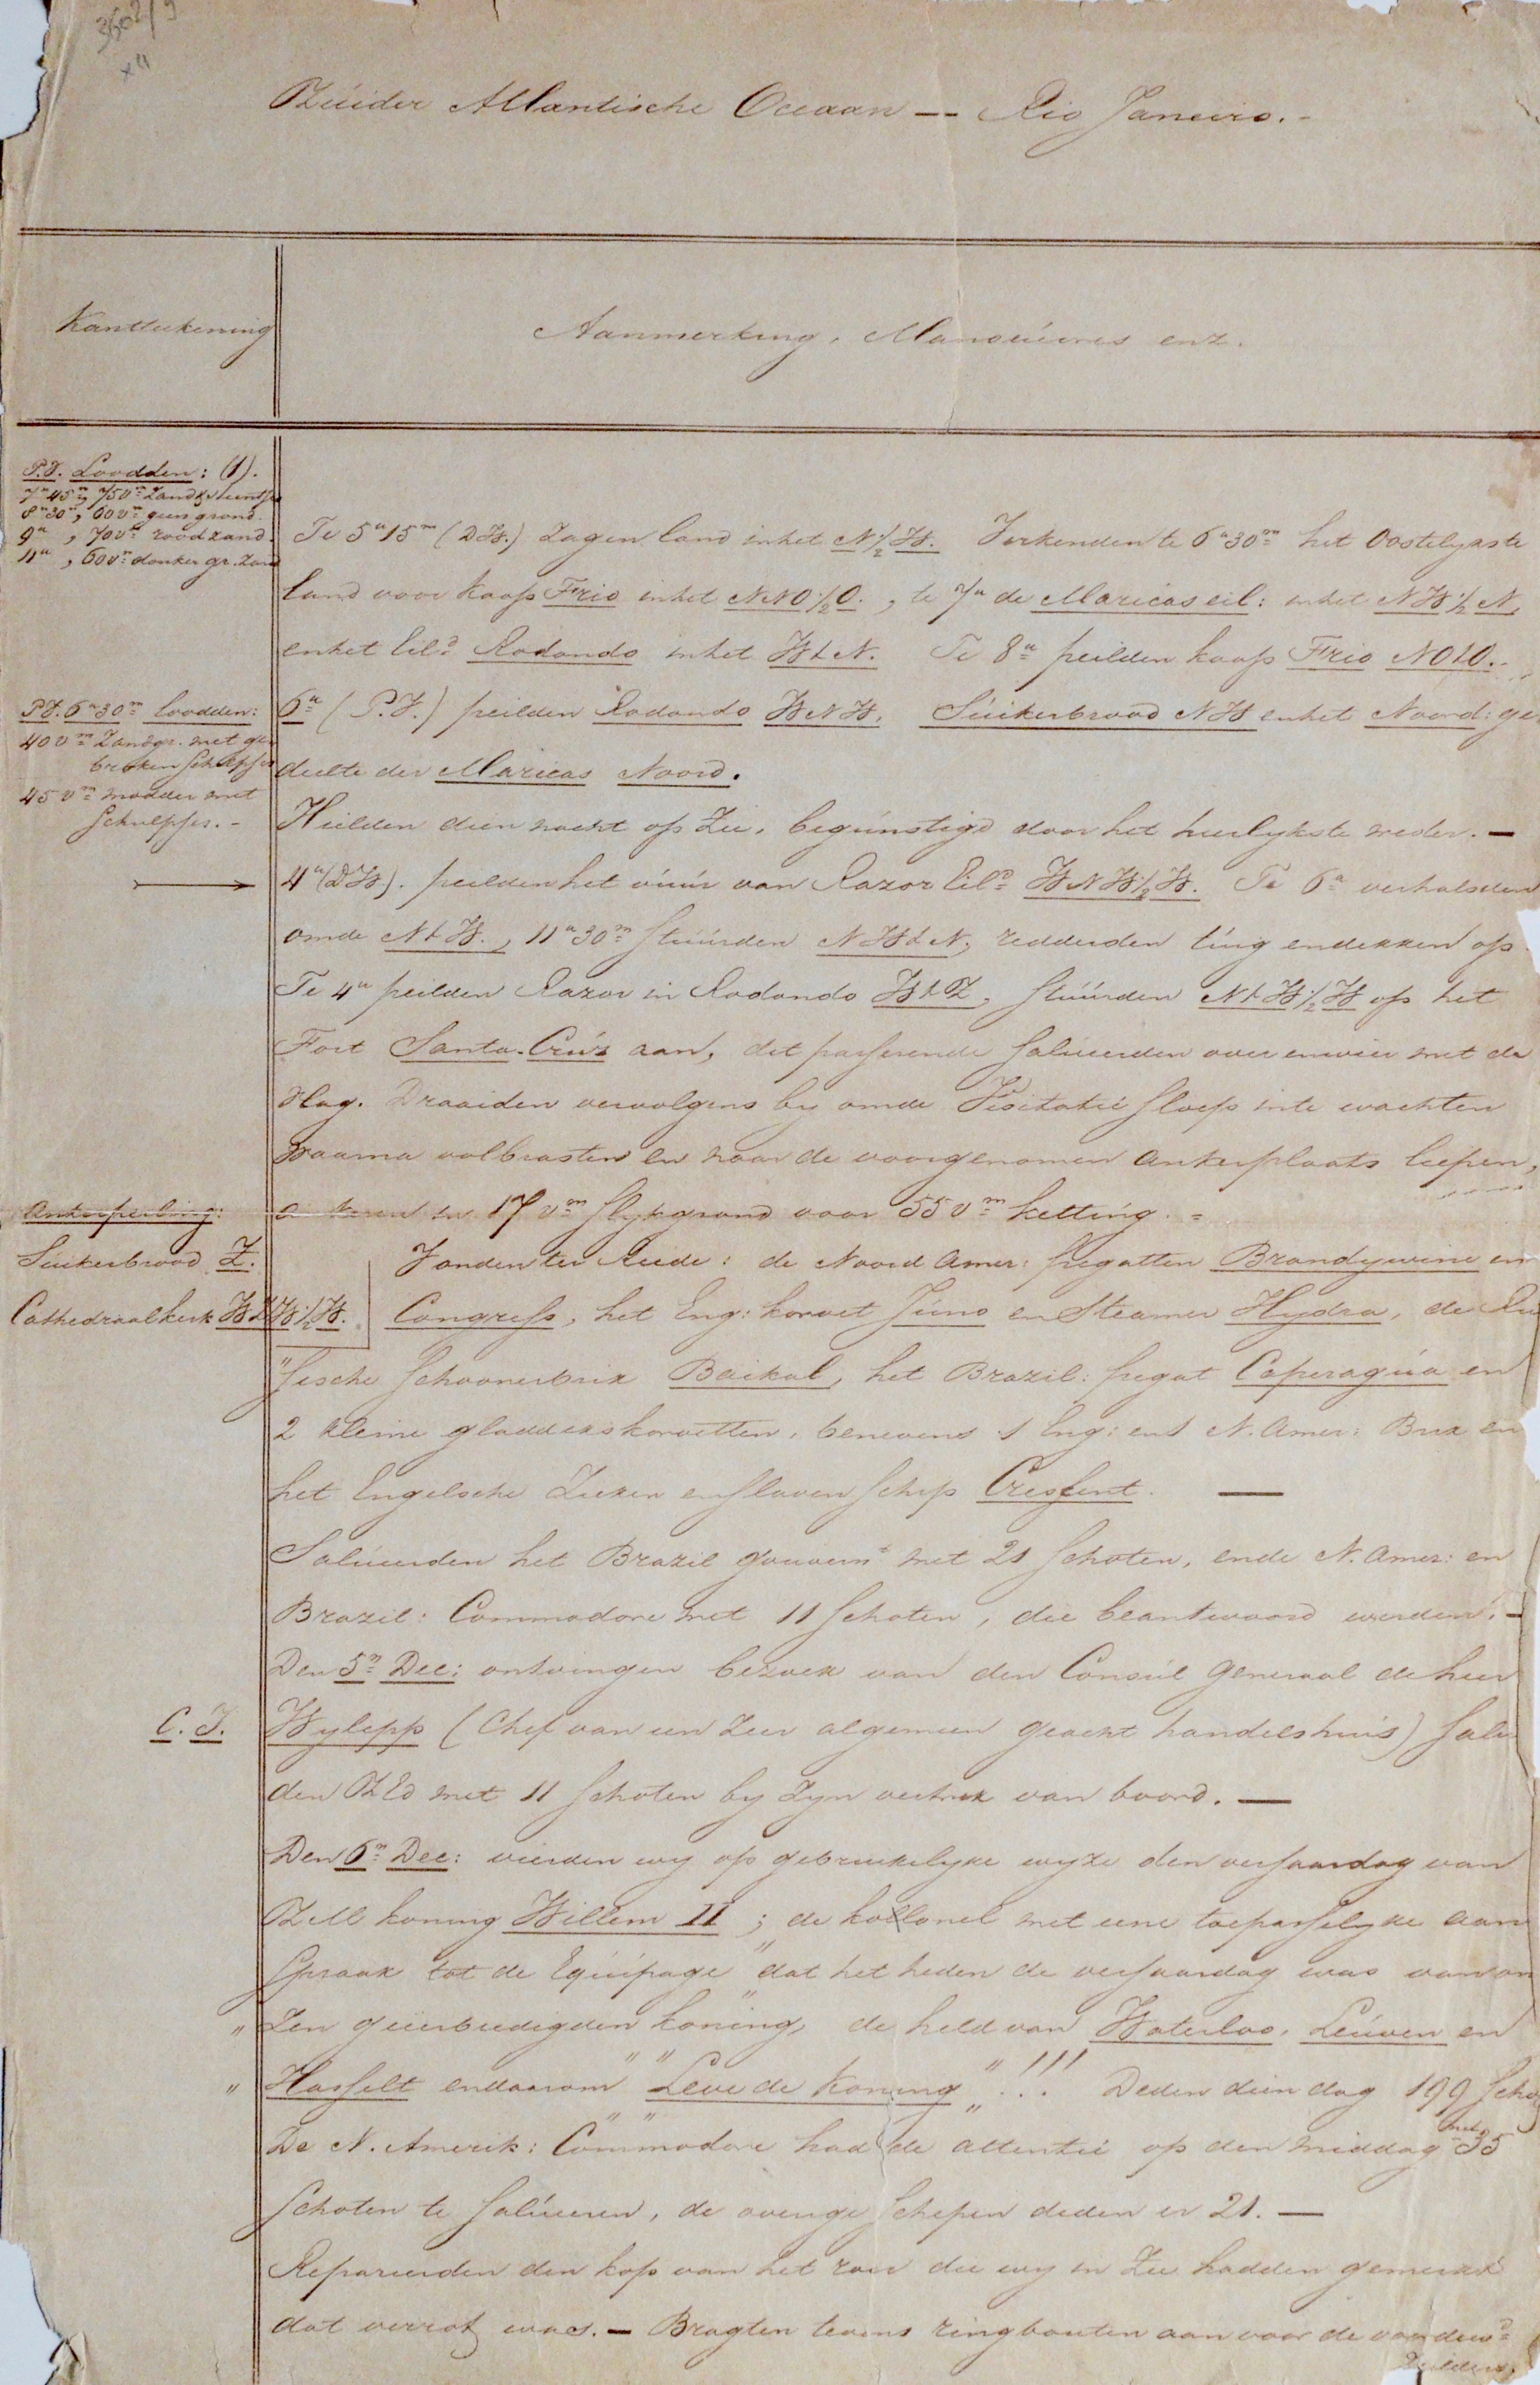 3602/9
x 4
Zuider Atlantische Oceaan -- Rio Janeiro. -
Kantteekening
Aanmerking, Manoeúvres enz.
P.V. Loodden: (1).
7u 45m, 750vm Zand & steentjes
8u 30m, 60vm geen grond.
9u , 70vm rood zand.
11u , 60vm donker gr. zand
Te 5u 15m (DW.) Zagen land in het N 1/2 W. Verkenden te 6u 30m het Oostelykste
land voor kaap Frio in het NNO 1/2 O. , te 7u de Maricas eil: in het NW 1/2 N,
en het Eild Rodondo in het W t N. Te 8u peilden kaap Frio NO t O. -
P.V. 6u 30m loodden:
40 vm Zandgr. met ge
broken schelpjes
45 vm modder met
schulpjes. -
6u (P.V.) peilden Rodondo WNW, Súikerbrood NW en het Noord: ge
deelte der Maricas Noord.
Hielden dien nacht op Zee, begúnstigd door het heerlykste weder. -
4u (DW). peilden het vúúr van Razor Eild WNW 1/2 W. Te 6u verhalsden
om de N t W. , 11u 30m stúúrden NW t N, redderden túig en dekken op.
Te 4u peilden Razor in Rodondo W t Z, stúúrden N t W 1/2 W op het
Fort Santa-Crúz aan, dit passerende salúeerden over en weer met de
vlag. Draaiden vervolgens by om de Visitatie sloep in te wachten
waarna volbrasten en naar de voorgenomen ankerplaats liepen,
ankeren in 17 vm slykgrond voor 55 vm ketting. =
Ankerpeiling:
Súikerbrood Z.
Cathedraalkerk W t W 1/2 W.
Vonden ter Reede: de Noord Amer: fregatten Brandywine en
Congress, het Eng: korvet Júno en Steamer Hydra, de Rus
"sische schoonerbrik Baikal, het Brazil: fregat Caperagúa en
2 kleine gladdekskorvetten, benevens 1 Eng: en 1 N. Amer: Brik en
het Engelsche Zieken en slaven schip Cressent. —
Salúeerden het Brazil goúvernt met 21 schoten, en de N. Amer: en
Brazil: Commodore met 11 schoten, die beantwoord werden. -
Den 5n Dec: ontvingen bezoek van den Consúl Generaal de heer
C. J. Wylepp (Chef van een Zeer algemeen geacht handelshuis) salu
den ZEd met 11 schoten by Zyn vertrek van boord. —
Den 6n Dec: vierden wy op gebruikelyke wyze den verjaardag van
ZM koning Willem II ; de kollonel met eene toepasselyke aan
spraak tot de Eqúipage "dat het heden de verjaardag was van on
" Zen geëerbiedigden koning, de held van Waterloo, Leúven en
" Hasselt en daarom " " Leve de koning " " !!! Deden dien dag 199 scho
De N. Amerik: Commodore had de attentie op den middag met 35
schoten te salúeren, de overige schepen deden er 21. —
Repareerden den kop van het roer die wy in Zee hadden gemerkt
dat verrot was. - Bragten tevens ringbouten aan voor de voorders